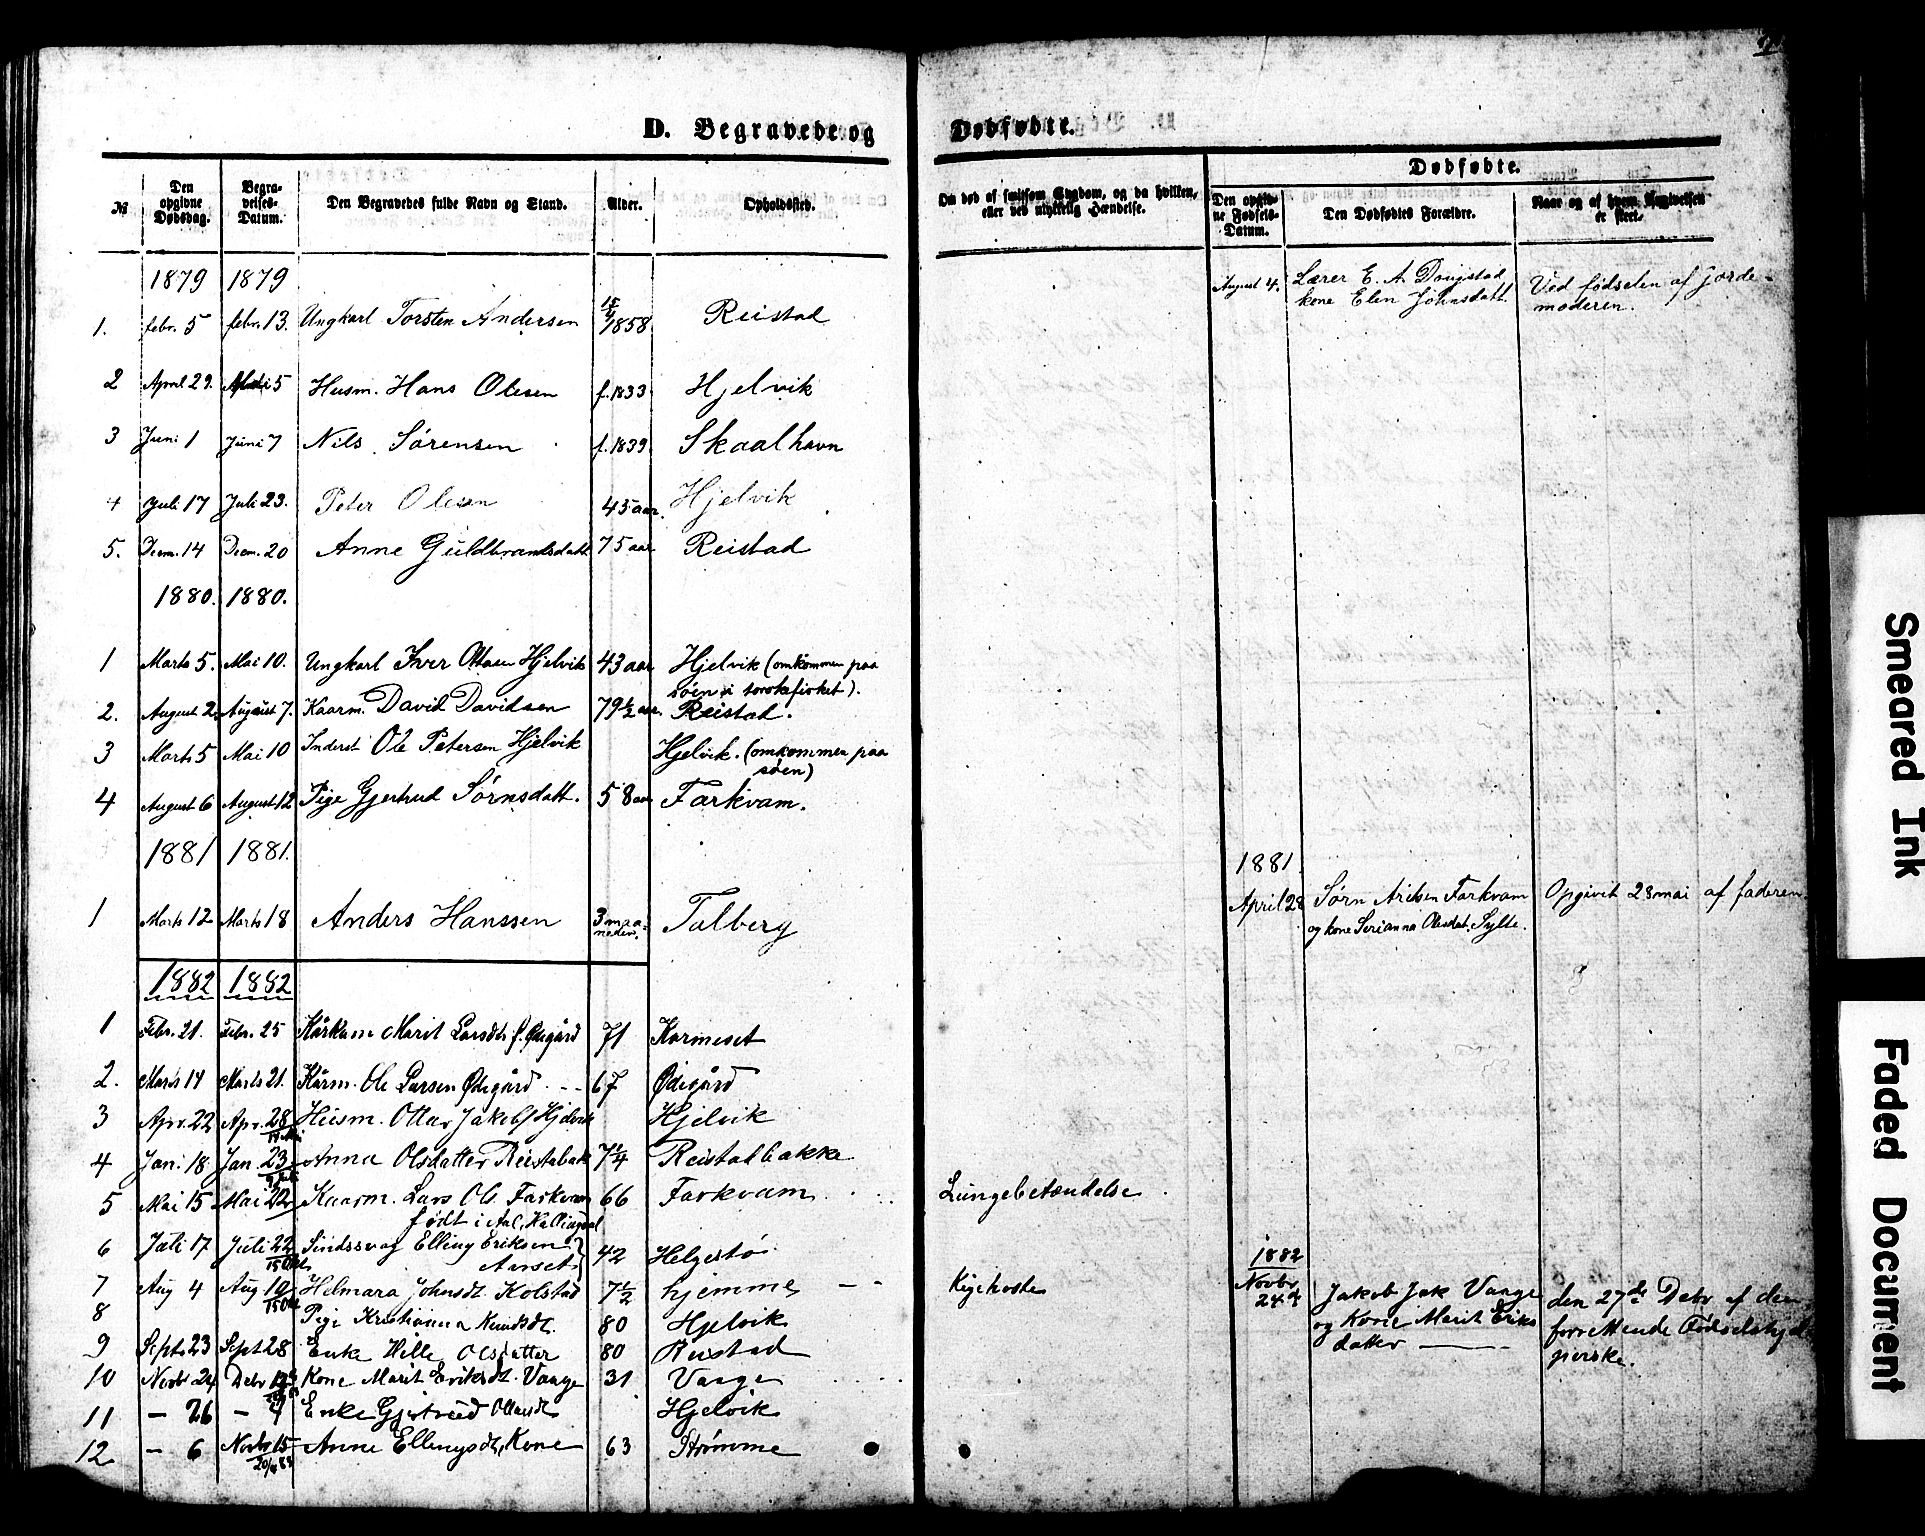 D. Begravede og Dødfødte.
№ Den opgivne Dødsdag. Begravelses-Datum. Den Begravedes fulde Navn og Stand. Alder. Opholdssted. Om død af smitsom Sygdom, og da hvilken, eller ved ulykkelig Hændelse.
Dødfødte.
Den opgivne Fødsels-Datum. Den Dødfødtes Forældre. Naar og af hvem Angivelsen er skeet.
1879 1879
August 4. Lærer E. A. Dougstad
kone Elen Johnsdatt.
Ved fødselen af jorde-
moderen.
1. febr. 5 febr. 13. Ungkarl Torsten Andersen 1858 Reistad
2 April 29. 5 Husm. Hans Olesen f. 1833 Hjelvik
3 Juni 1 Juni 7 Nils Sørensen f. 1839. Skaalhavn
4 Juli 17 Juli 23. Peter Olesen 45 aar. Hjelvik
5. Decm. 14 Decm. 20 Anne Guldbrandsdatt 75 aar Reistad
1880. 1880.
1 Marts 5. Mai 10. Ungkarl Iver Ottosen Hjelvik 43 aar Hjelvik (omkommen paa
søen i torskefisket).
2. August 2. August 7. Kaarm. David Davidsen 79½ aar. Reistad.
3 Marts 5 Mai 10 Inderst Ole Petersen Hjelvik Hjelvik. (omkommen paa
søen)
4 August 6 August 12 Pige Gjertrud Sørnsdatt. 58 aar Farkvam.
1881 1881.
1881.
1 Marts 12 Marts 18 Anders Hanssen 3 maa-
neder. Talberg
April 28 Sørn Arcksen Farkvam
og kone Serianna Olesdat. Sylte.
Opgivit 28 mai af faderen
1882 1882
1 Febr. 21. Febr. 25 Kårkone Marit Larsdtr f. Ødegård 71 Kormeset
2. Marts 14 Marts 21. Kårm. Ole Larsen Ødegård 67 Ødegård
3 Apr. 22 Apr. 28 Husm. Ottar Jakobs Hjelvik Hjelvik
4 Jan. 18 Jan. 23 Anna Olsdatter Reistabak 7¼ Reistadbakke
5 Mai 15 Mai 22 Kaarm. Lars Ols. Farkvam 66 Farkvam Lungebetændelse
født i Aal, Hallingdal
6 Juli 17 Juli 22 Sindssvag Elling Eriksen 42 Helgestø
Aarset
7 Aug 4 Aug 10 Helmara Johnsdt. Kolstad 7½ hjemme Kighoste
8 Pige Kristianna Knudsdt. 80 Hjelvik
9 Sept 23 Sept 28 Enke Hille Olsdatter 80 Reistad
10 Novbr 24 Debr Kone Marit Eriksdt. Vaage 31 Vaage
11 — 26 — Enke Gjertrud Ottarsdt Hjelvik
12 — 6 Novbr 15 Anne Ellingsdt, Kone 63 Strømme
1882
Novbr
24de
Jakob Jak Vaage
og Kone Marit Eriks
datter ———
den 27de Debr af den
forrettende Fødselshjæl-
perske.
Smeared Ink
Faded Document